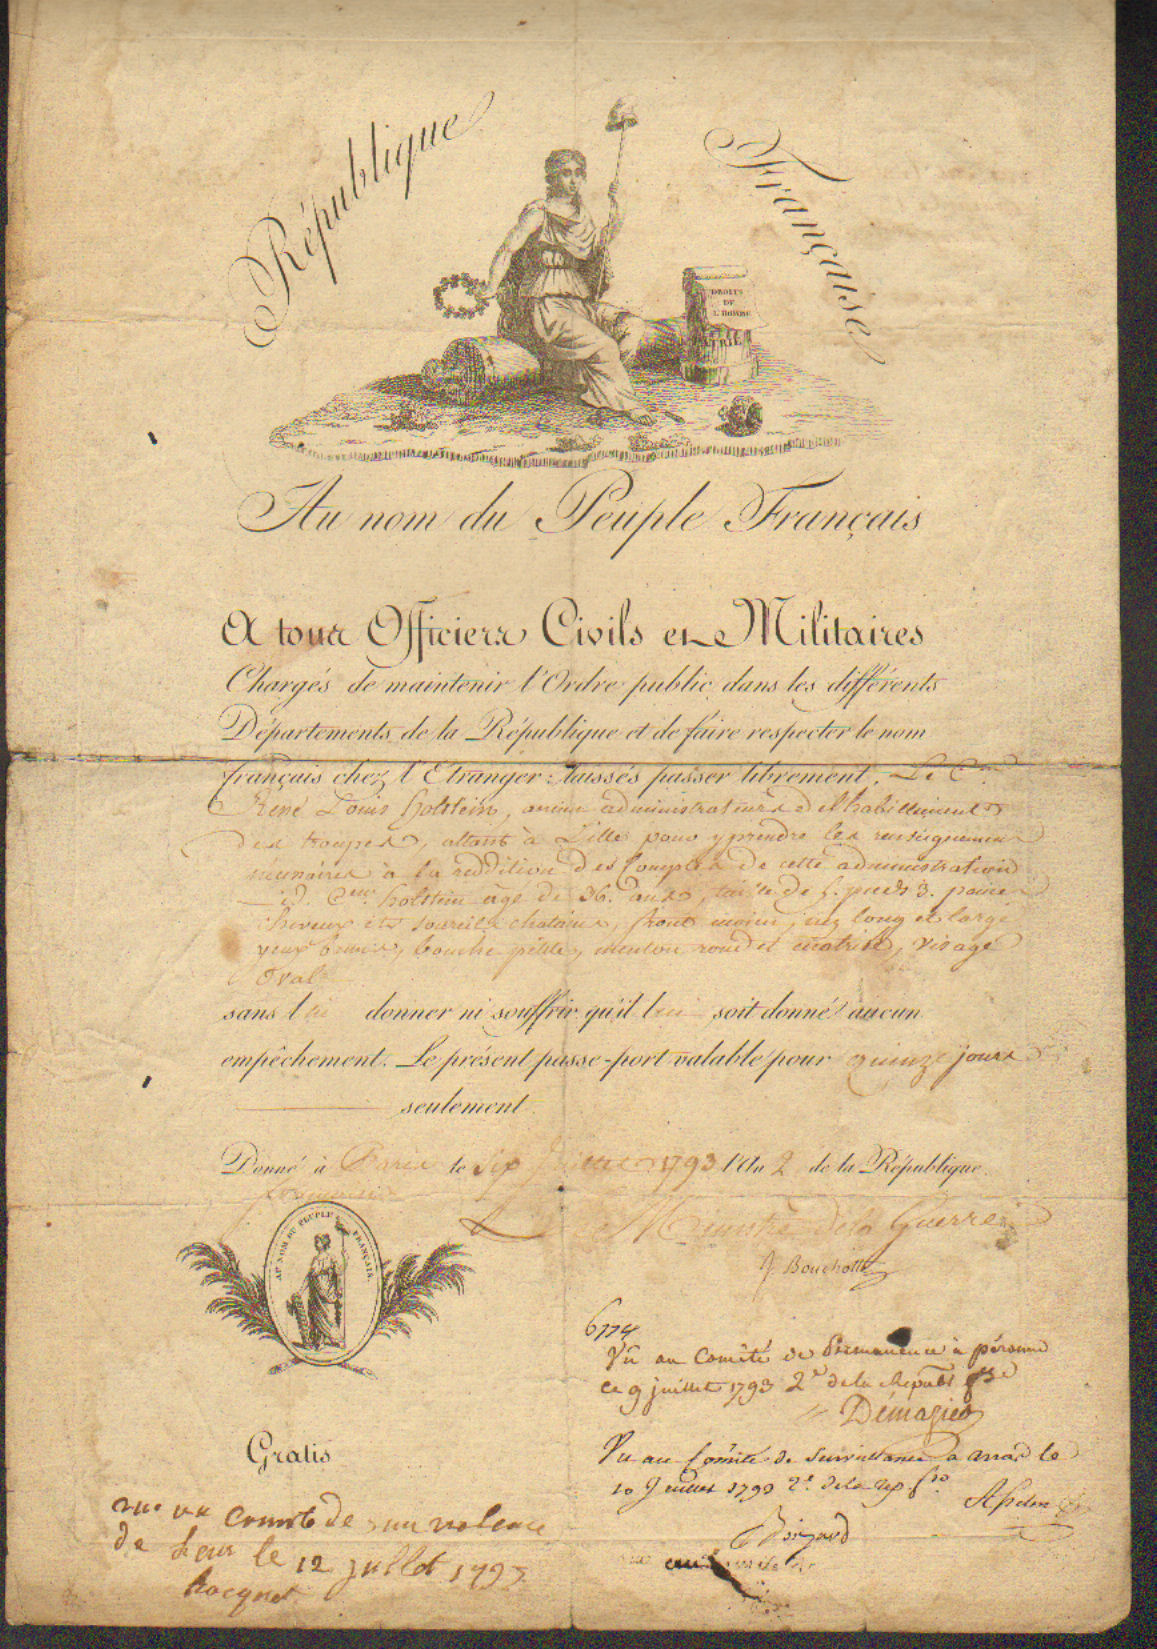 République Française
DROITS
DE
L'HOMME
Au nom du Peuple Français
A tous Officiers Civils et Militaires
Chargés de maintenir l'Ordre public dans les différents
Départements de la République et de faire respecter le nom
français chez l'Etranger : laissés passer librement. Le C.en
René Louis Holstein, ancien administrateur de l'habillement
des troupes, allant à Lille pour y prendre les renseignemens
nécessaires à la reddition des Comptes de cette administration
Holstein agé de 36. ans, taille de 5. pieds 3. pouces
cheveux et sourcils chatains, front moien, nez long et large
yeux bruns, bouche petite, menton rond et visage
Oval
sans lui donner ni souffrir qu'il lui soit donné aucun
empêchement. Le présent passe-port valable pour quinze jours
seulement.
Donné à Paris le Six Juillet 1793 l'An 2 de la République
Le Ministre de la Guerre
J Bouchotte
AU NOM DU PEUPLE FRANÇAIS.
6774
Vu au Comité de Permanence à péronne
ce 9 juillet 1793 2e de la Republ fse
Démazier
Gratis
Vu au Comité de Surveillance a arras le
10 Juillet 1793 2e de la rep fse
vu au Comité de
de le 12 jullet 1793